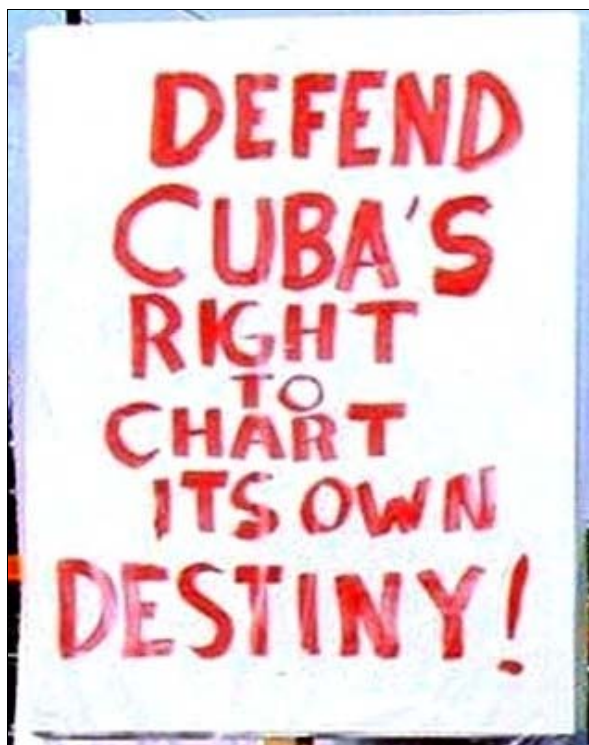 DEFEND
CUBA'S
RIGHT
TO
CHART
ITS OWN
DESTINY!